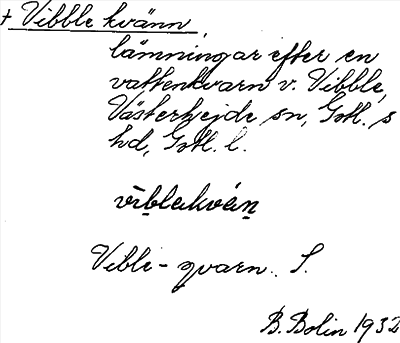 + Vibble kvänn,
lämningar efter en
vattenkvarn v. Vibble,
Västerhejde sn, Gotl. s
hd, Gotl. l.
vìblakvä́n
Vible-qvarn. S.
B. Bolin 1932